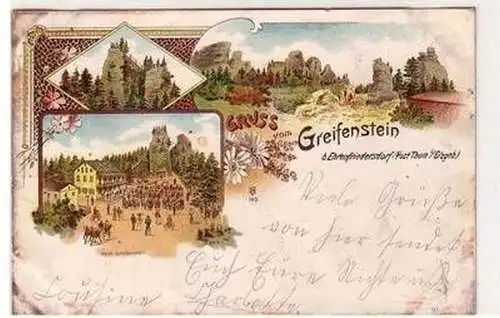 Gruss vom
Greifenstein
b. Ehrenfriedersdorf (Post Thum i/Erzgeb.)
Viele Grüße
von hier sendet
Euch Eure Nichte u.
Cousine